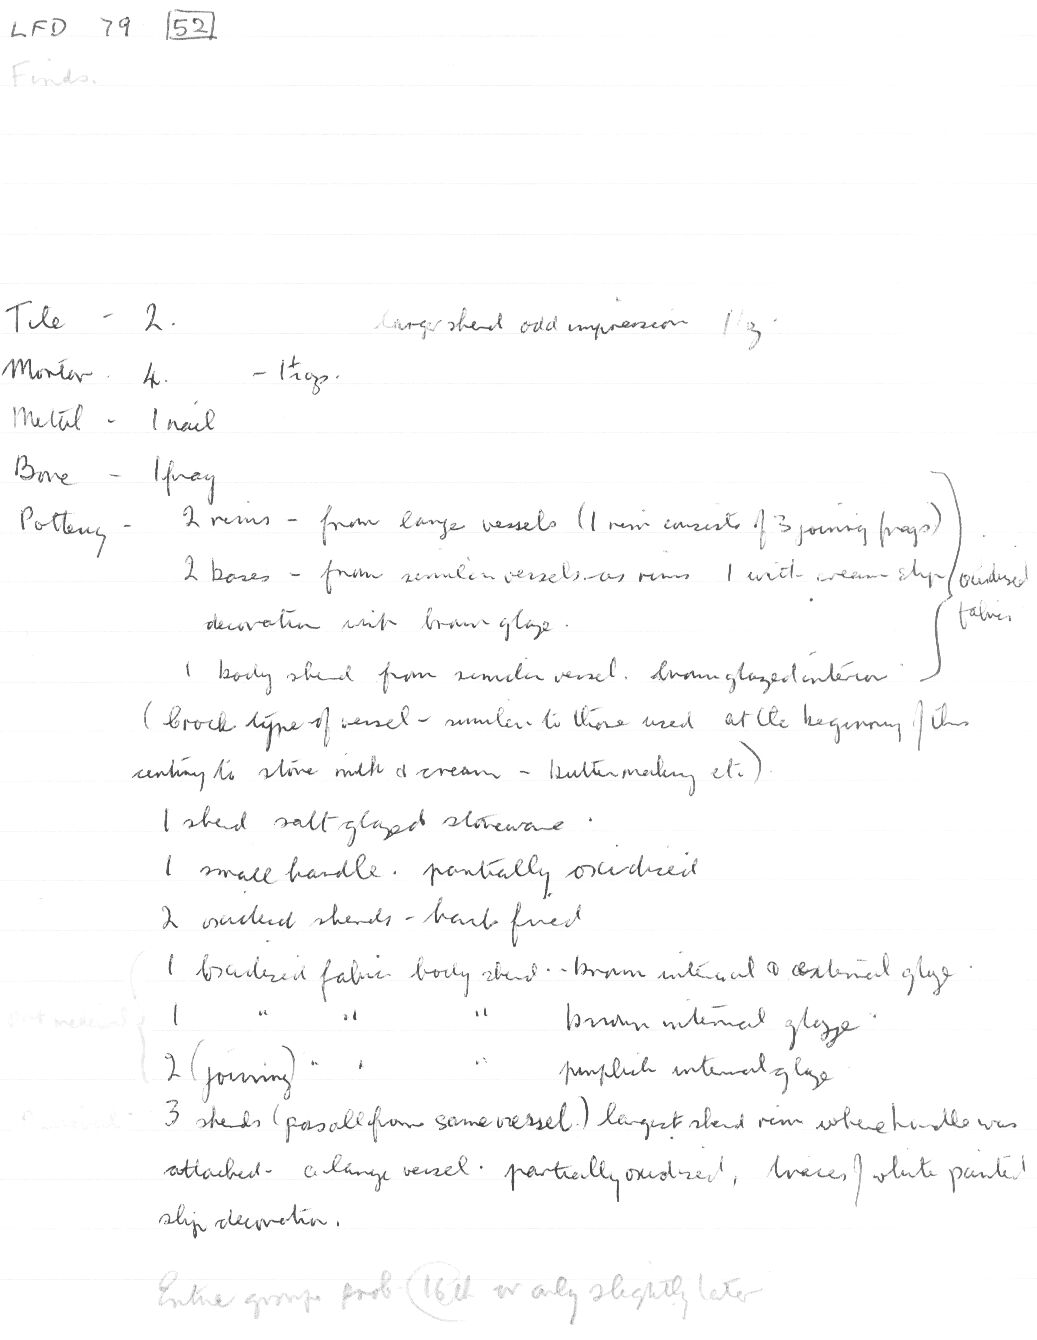 LFD 79 52
Finds.
Tile - 2. large sherd odd impression
Mortar. 4. - 1 frag.
Metal - 1 nail
Bone - 1 frag
Pottery - 2 rims - from large vessels (1 rim consists of 3 joining frags)
2 bases - from similar vessels as rims 1 with cream slip
decoration with brown glaze.
oxidised
fabric
1 body sherd from similar vessel. brown glazed interior
(crock type of vessel - similar to those used at the beginning of this
century to store milk & cream - butter making etc).
1 sherd salt glazed stoneware.
1 small handle. partially oxidised
2 oxidised sherds - hard fired
1 oxidised fabric body sherd - brown internal & external glaze.
1 " " " brown internal glaze.
2 (joining) " " " purplish internal glaze
3 sherds (poss all from same vessel.) largest sherd rim where handle was
attached - a large vessel. partially oxidised, traces of white painted
slip decoration.
Entire group prob. 16th or only slightly later